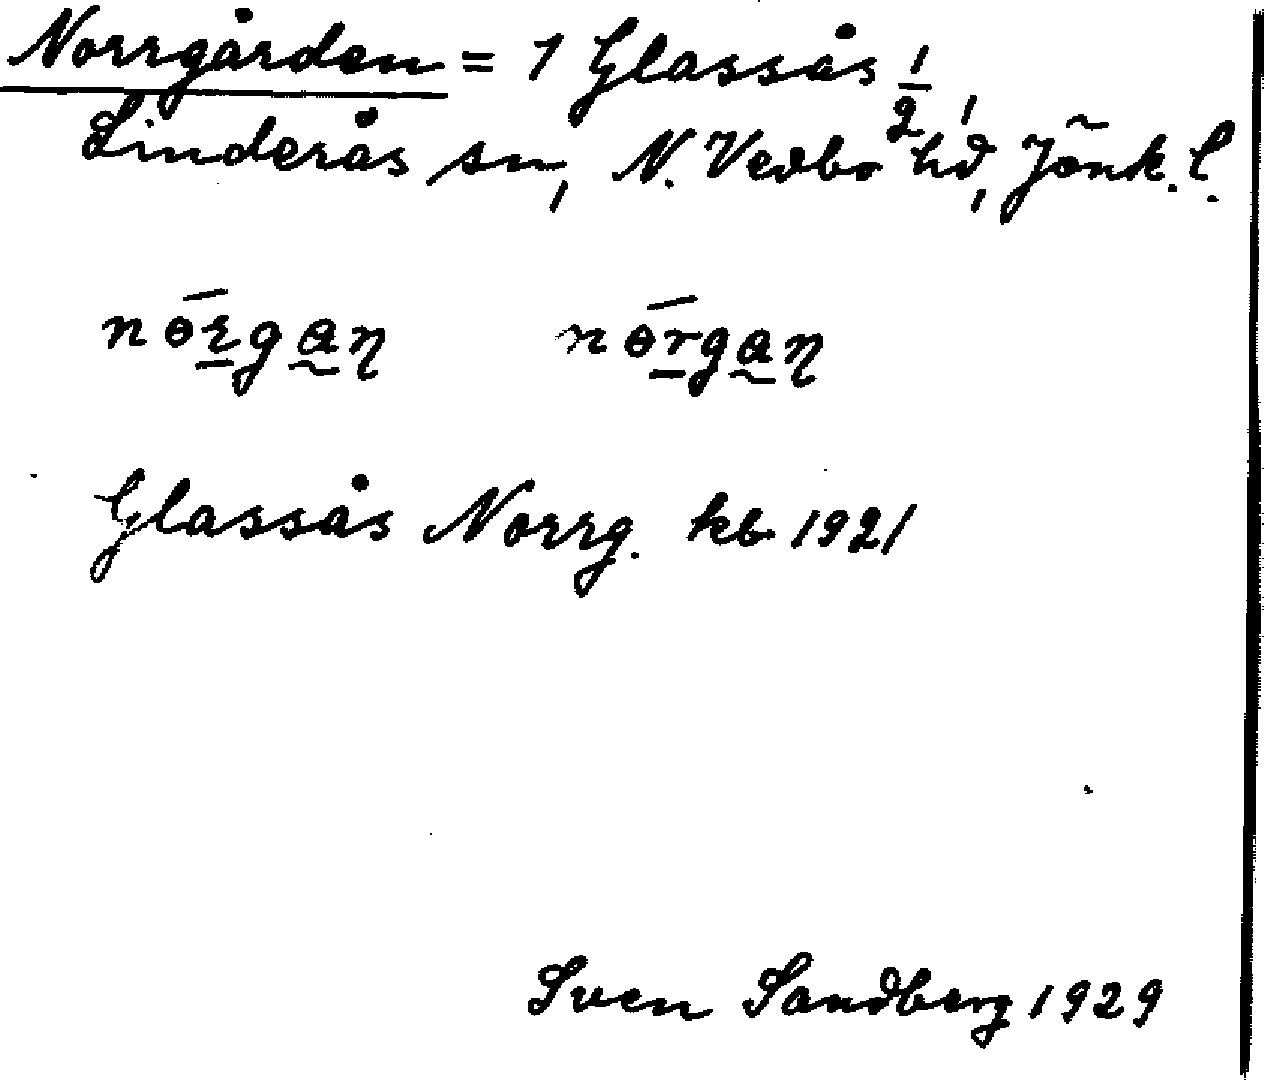 Norrgården = 1 Glassås 1/2,
Linderås sn, N. Vedbo hd, Jönk. l.
nɵ́rgan nɵ́rgan
Glassås Norrg. kb 1921
Sven Sandberg 1929